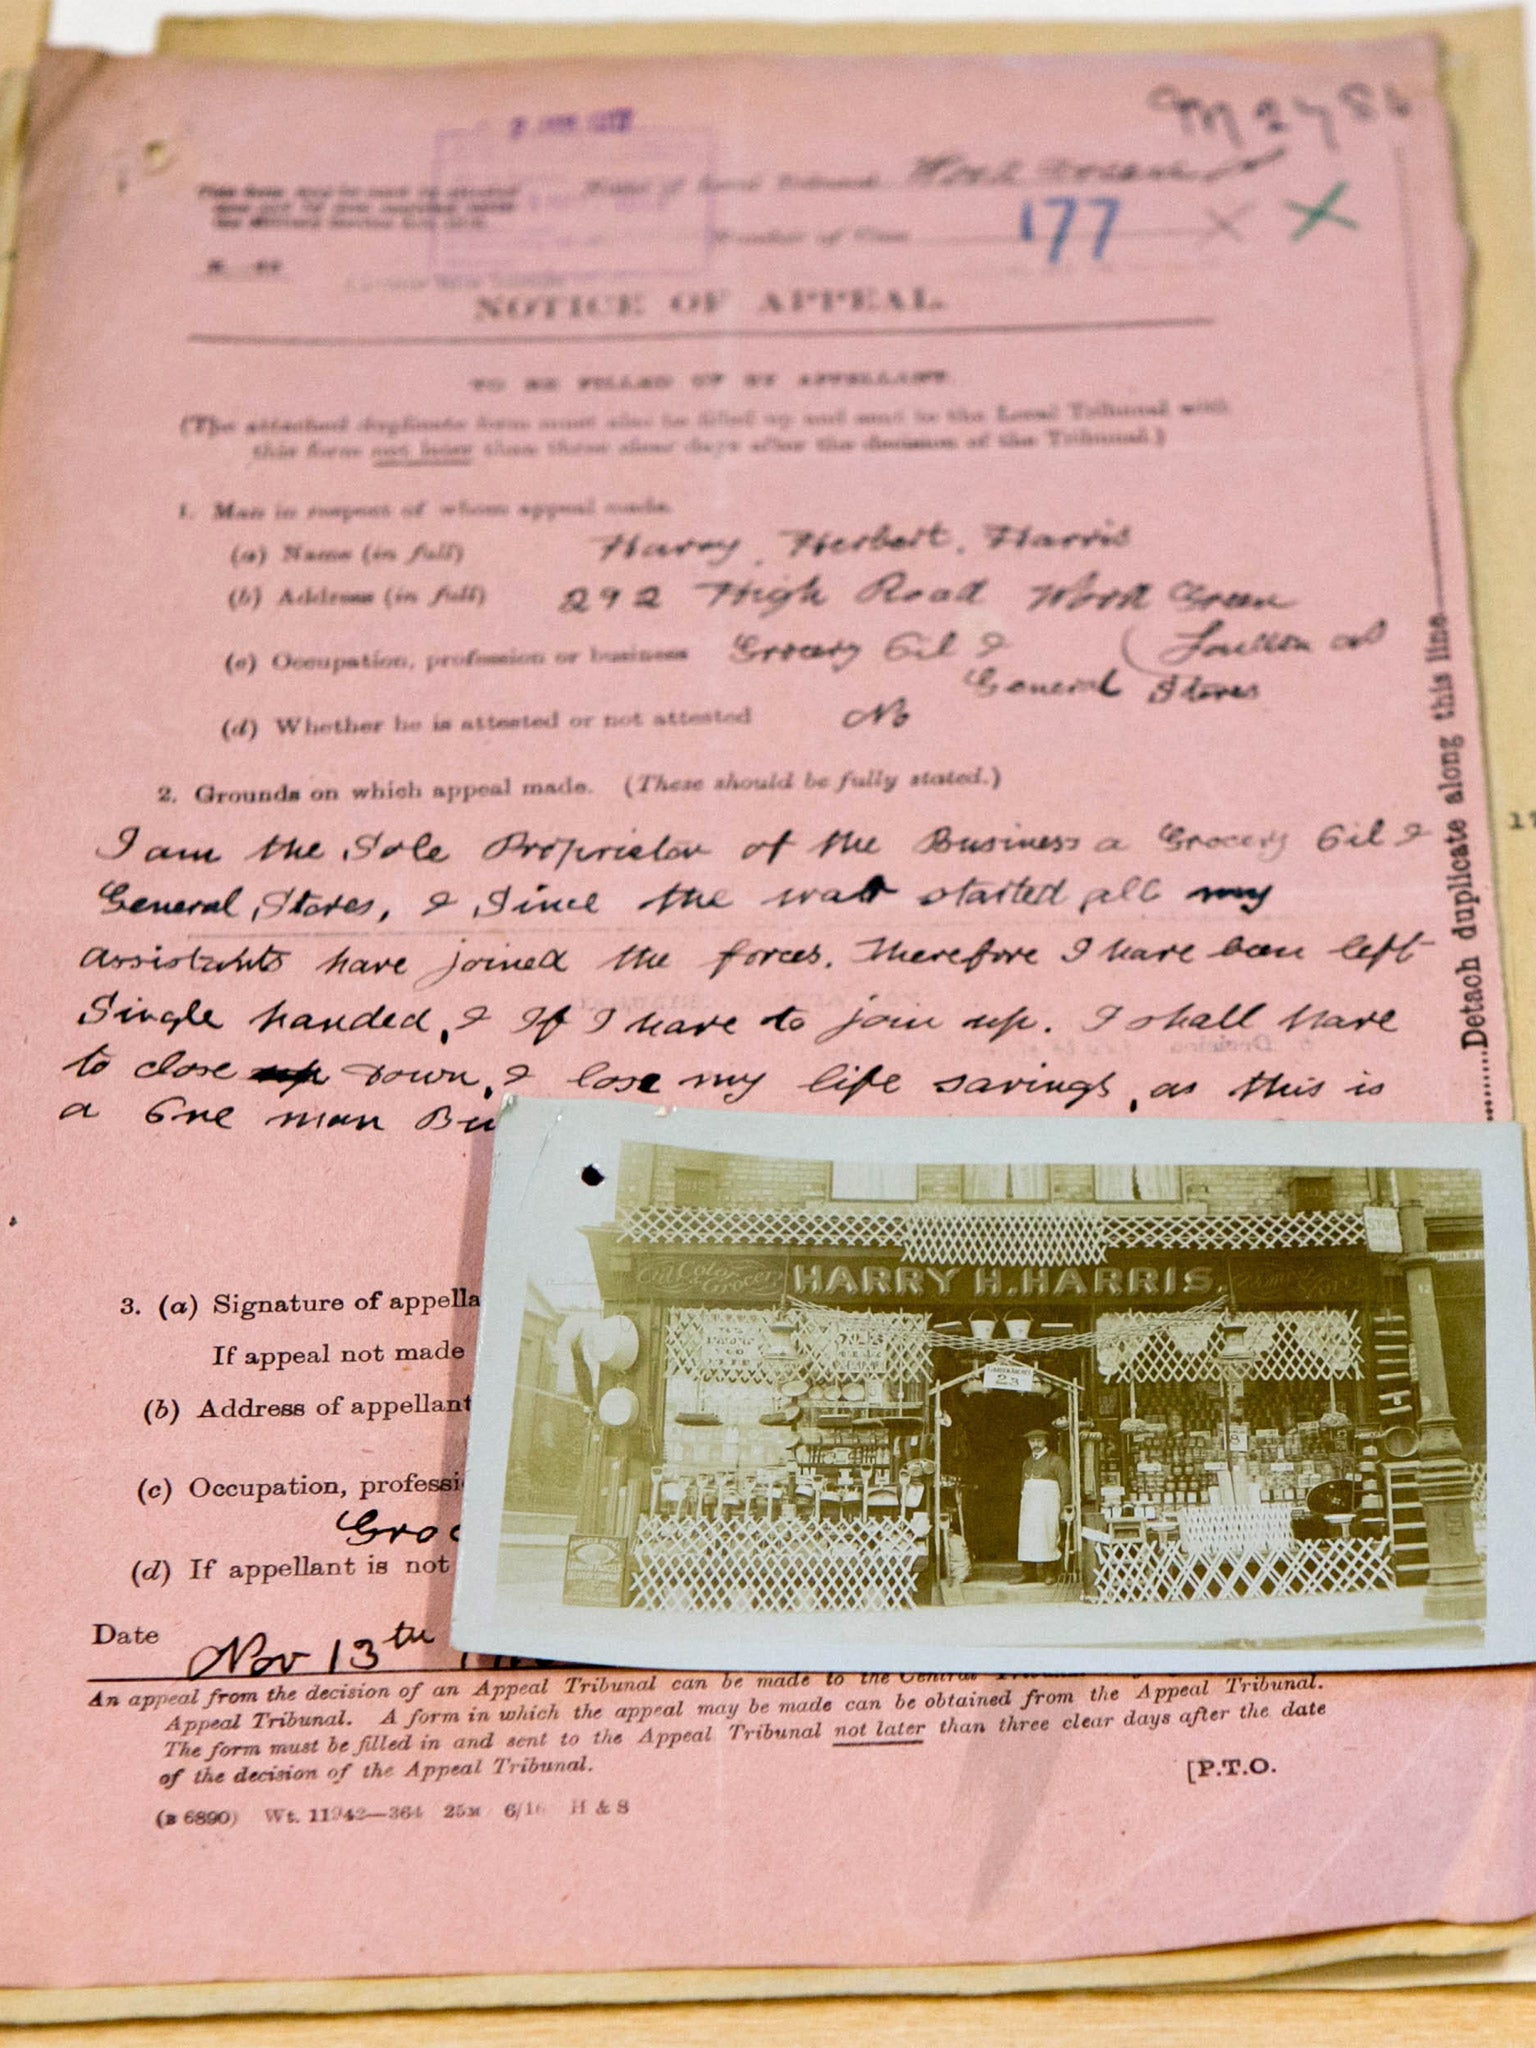 M 2786
This form may be used by attested
Name of Local Tribunal Wood Green
Number of Case 177
NOTICE OF APPEAL.
TO BE FILLED UP BY APPELLANT.
(The attached duplicate form must also be filled up and sent to the Local Tribunal with
this form not later than three clear days after the decision of the Tribunal.)
1. Man in respect of whom appeal made.
(a) Name (in full) Harry Herbert Harris
(b) Address (in full) 292 High Road Wood Green
(c) Occupation, profession or business Grocery Oil &
General Stores
(d) Whether he is attested or not attested No
2. Grounds on which appeal made. (These should be fully stated.)
I am the Sole Proprietor of the Business a Grocery Oil &
General Stores, & Since the war started all my
assistants have joined the forces. Therefore I have been left
Single handed, & If I have to join up. I shall have
to close up Down, & lose my life savings, as this is
a One man Bu
3. (a) Signature of appella
If appeal not made
(b) Address of appellant
(c) Occupation, professi
Groc
(d) If appellant is not
Date Nov 13th
An appeal from the decision of an Appeal Tribunal can be made to the Central
Appeal Tribunal. A form in which the appeal may be made can be obtained from the Appeal Tribunal.
The form must be filled in and sent to the Appeal Tribunal not later than three clear days after the date
of the decision of the Appeal Tribunal.
[P.T.O.
(B 6890) Wt. 11942—364 25M 6/16 H & S
Detach duplicate along this line
HARRY H. HARRIS.
23